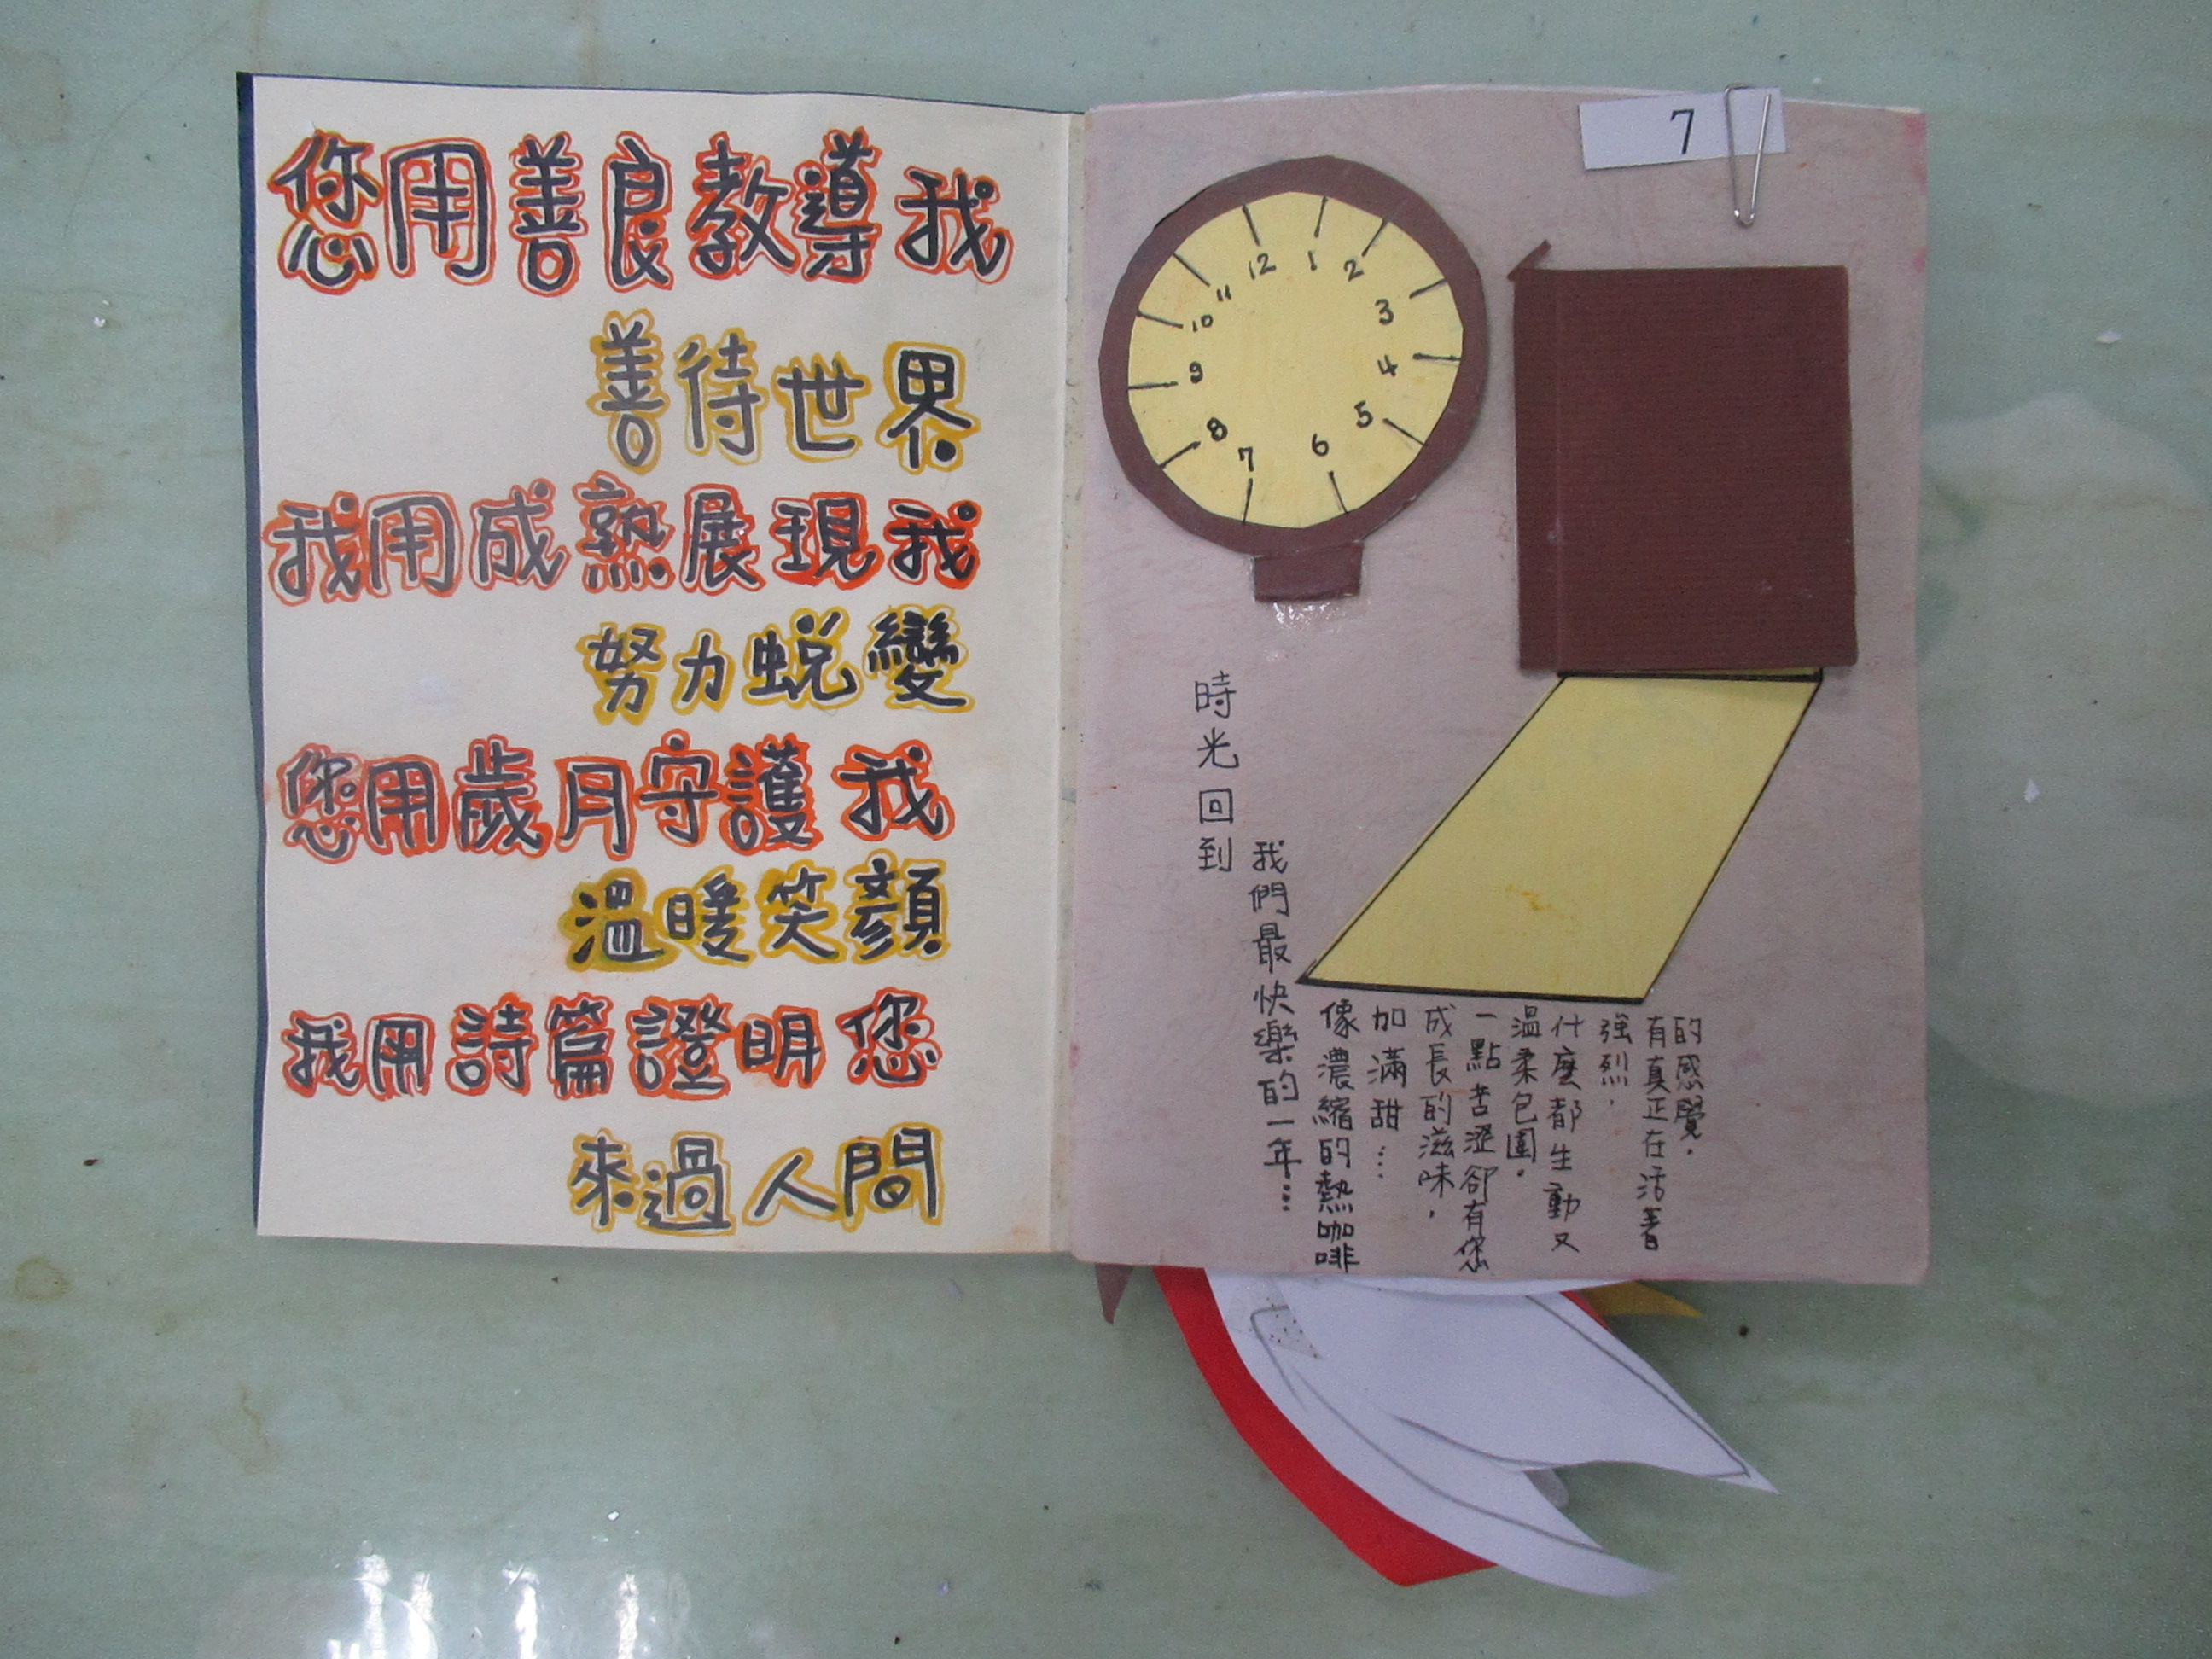 您用善良教導我
善待世界
我用成熟展現我
努力蛻變
您用歲月守護我
溫暖笑顏
我用詩篇證明您
來過人間
7
12
1
2
3
4
5
6
7
8
9
10
11
時光回到
我們最快樂的一年...
像濃縮的熱咖啡
加滿甜...
成長的滋味，
一點苦澀卻有您
溫柔包圍。
什麼都生動又
強烈，
有真正在活著
的感覺。